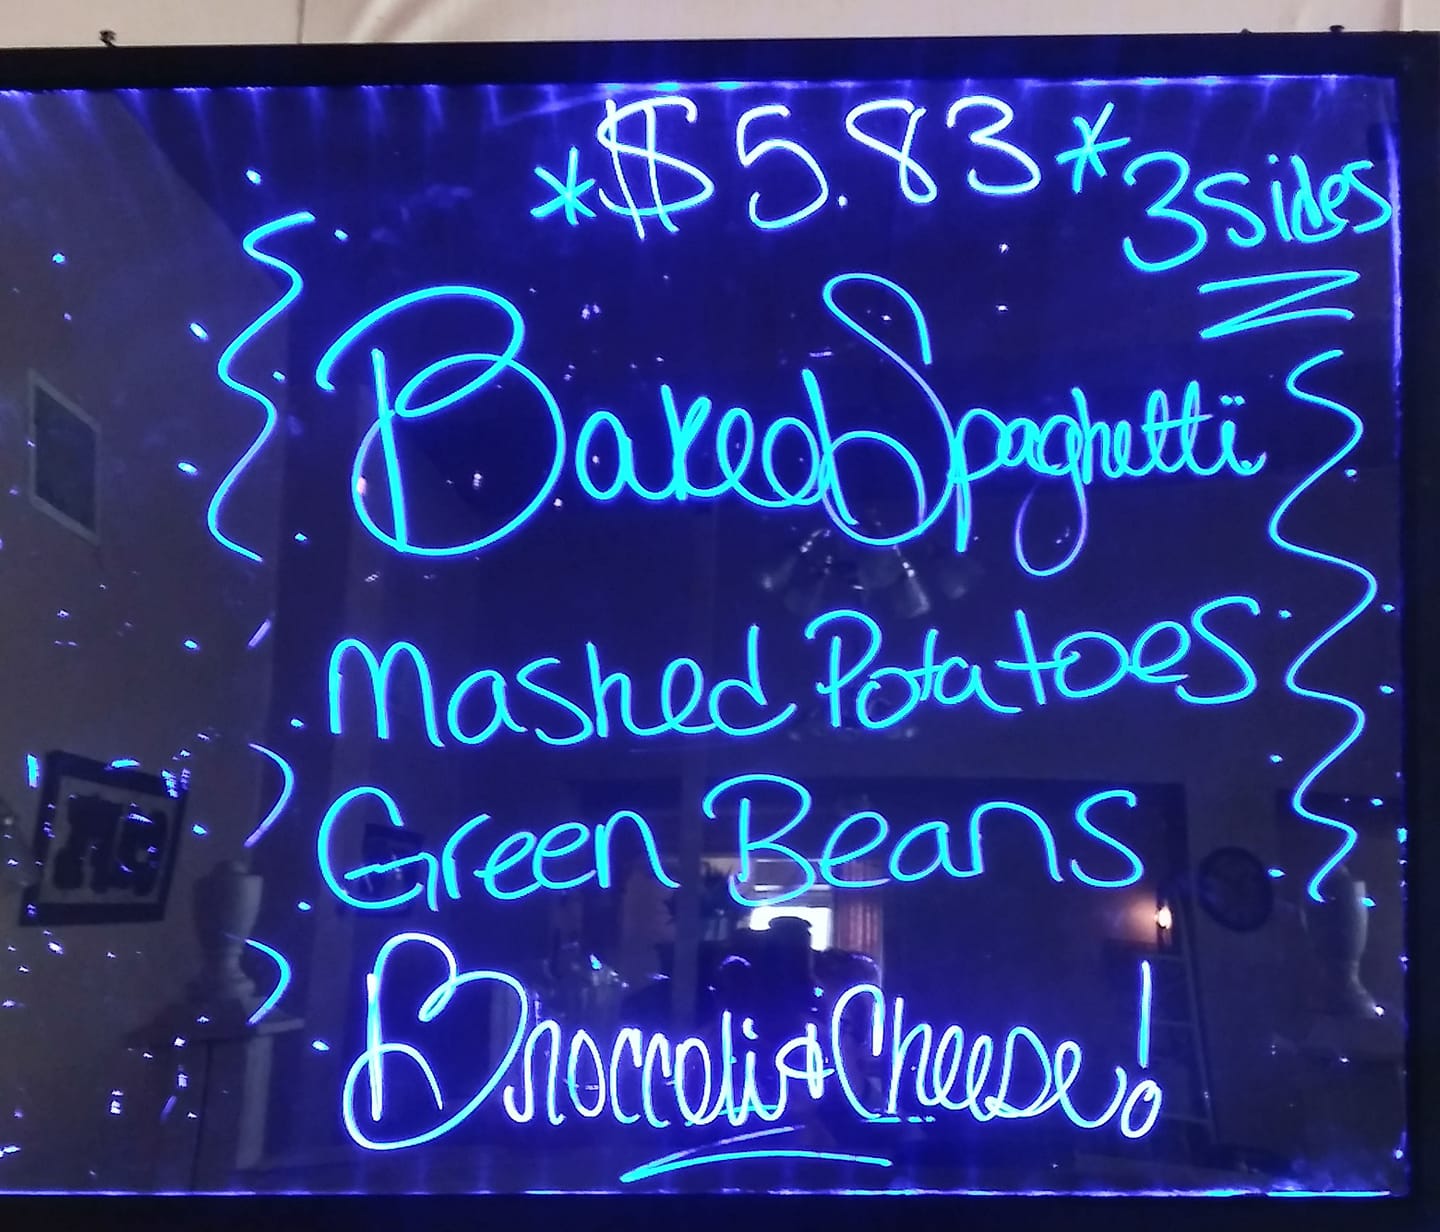 *$5.83* 3 sides
Baked Spaghetti
Mashed Potatoes
Green Beans
Broccoli & Cheese!